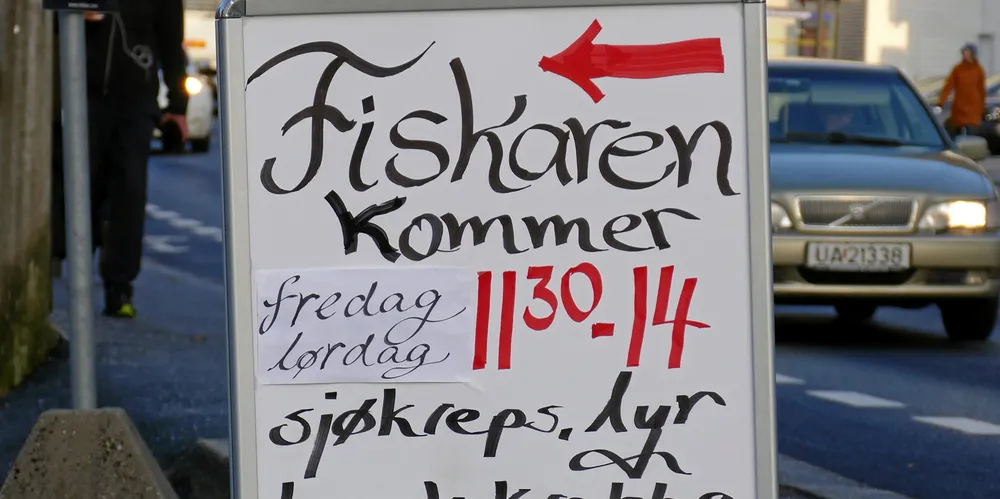 Fiskaren
kommer
fredag
lørdag
1130-14
sjøkreps, lyr
UA 21338